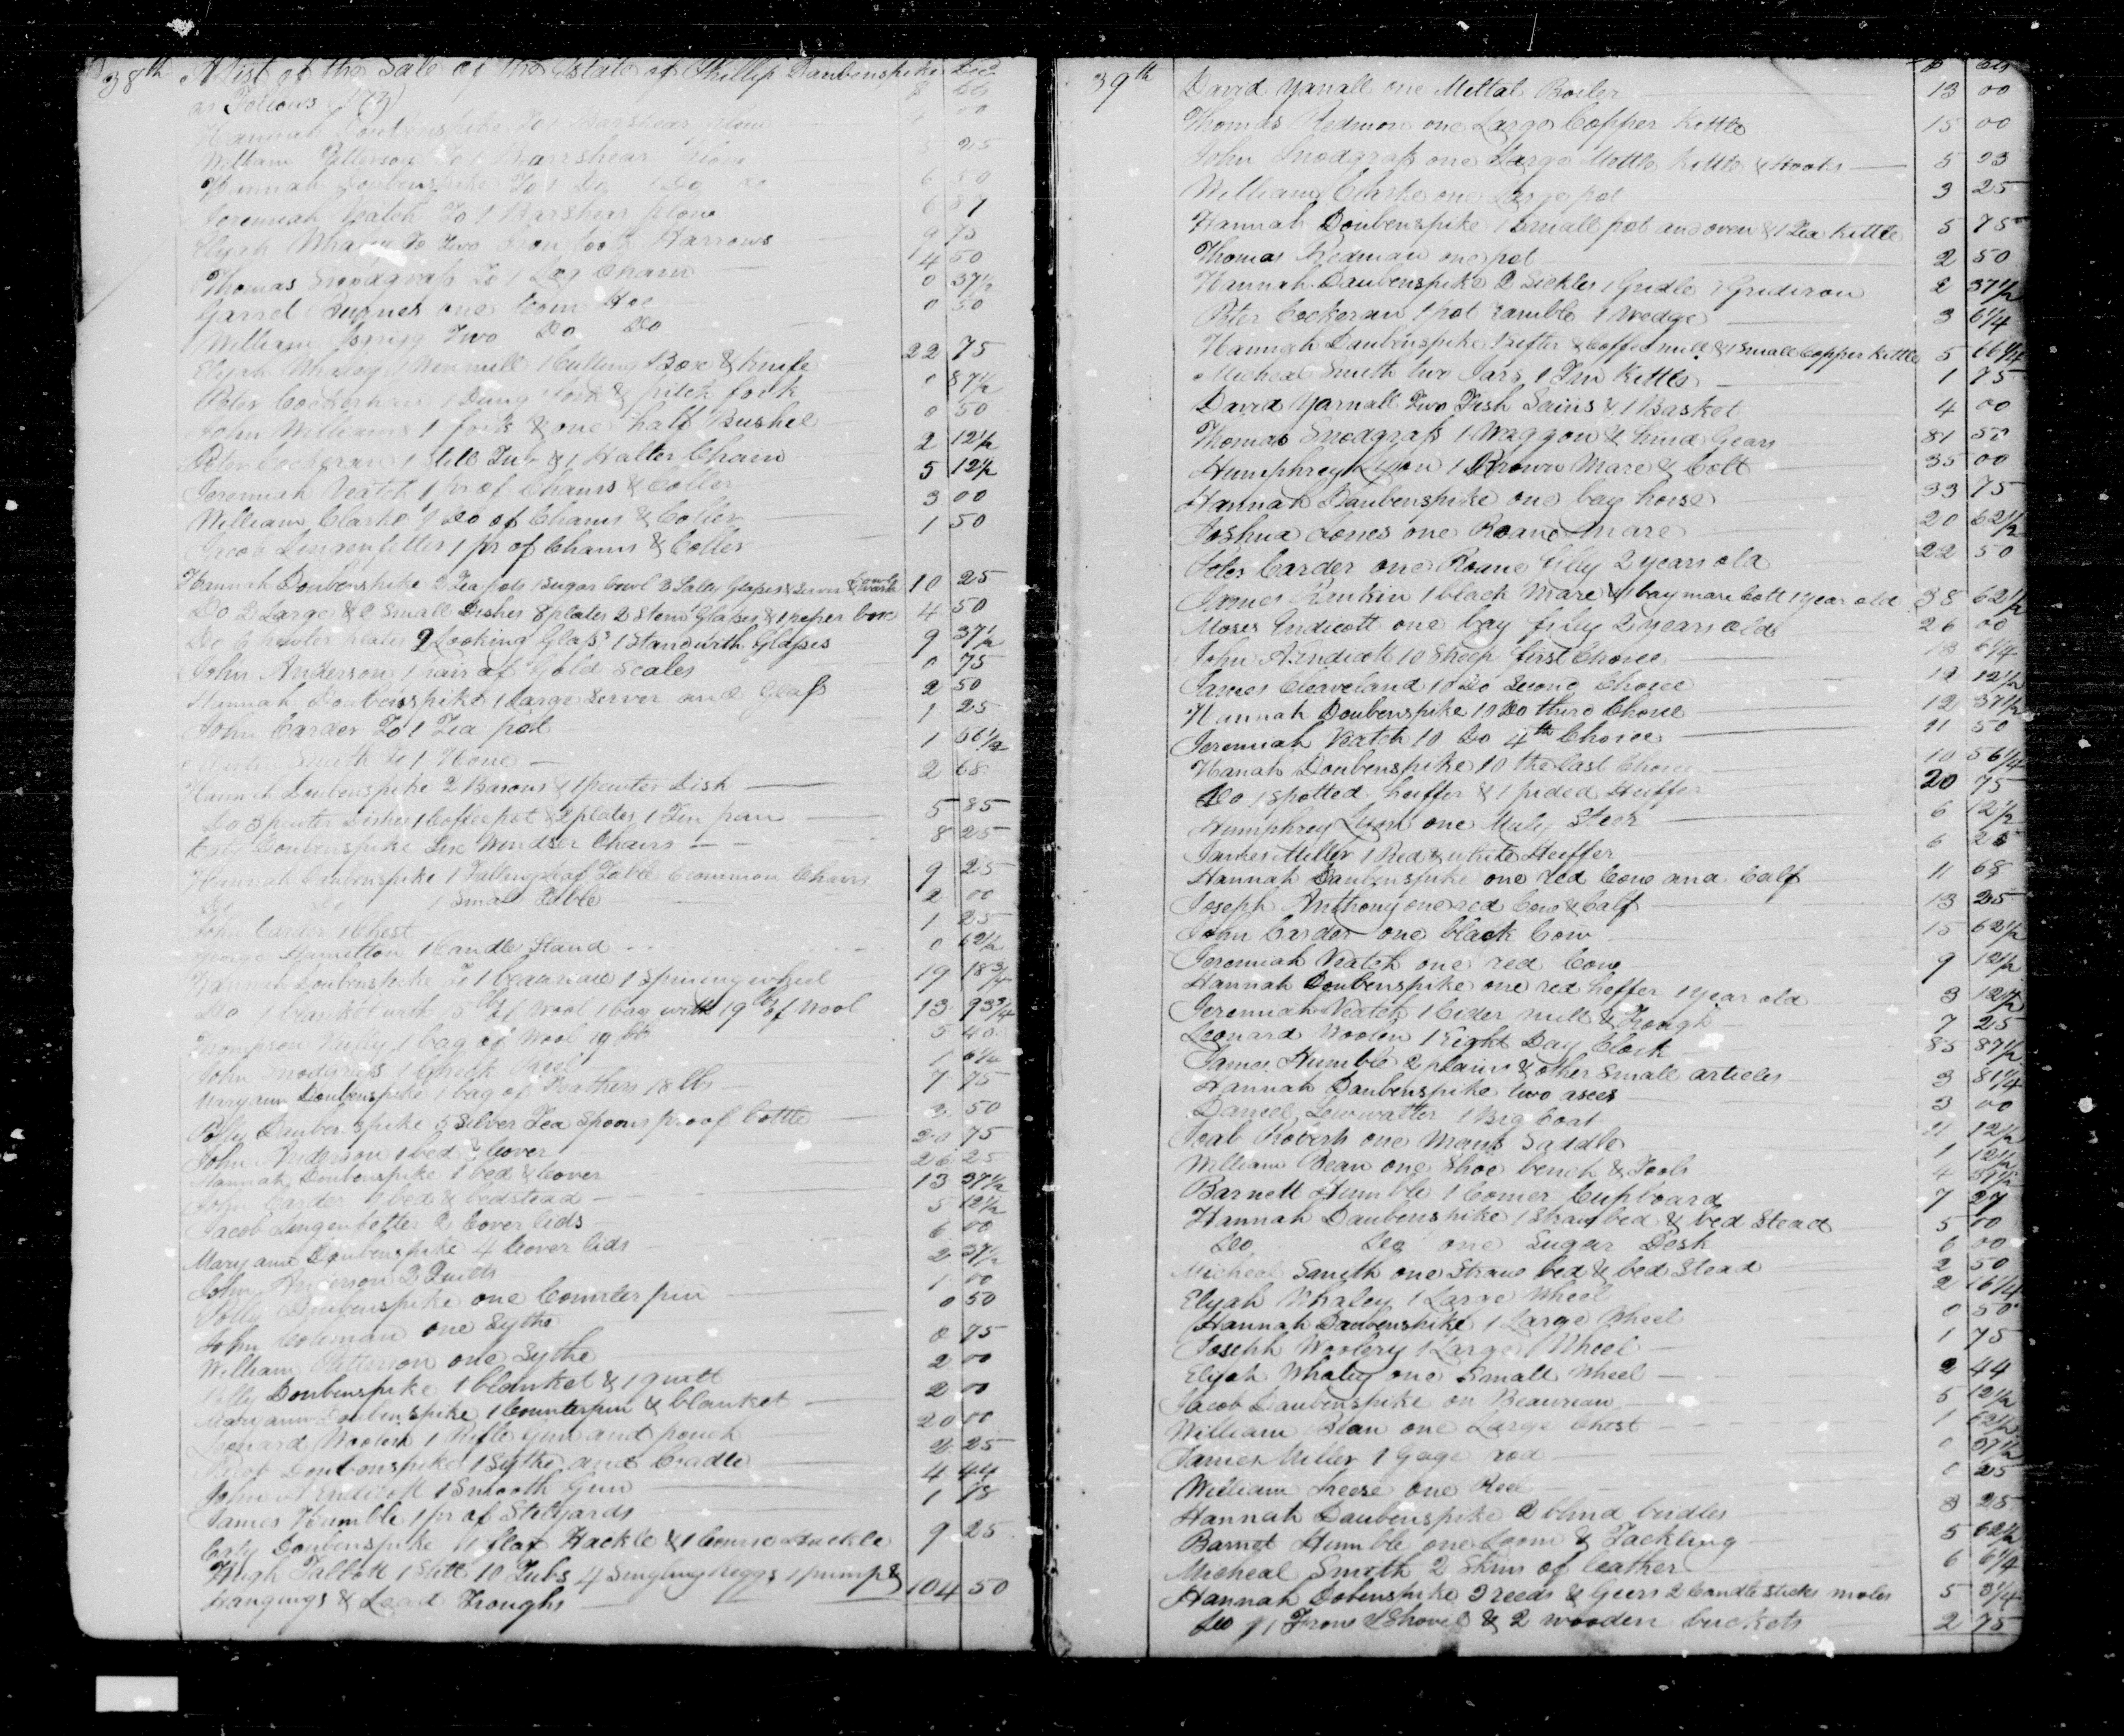 38th A List of the Sale of the Estate of Phillip Daubenspike Decd
as Follows (173) $ cts
Hannah Doubenspike To 1 Barshear plow 00
William Patterson To 1 Barrshear Plow 5 25
Hannah Doubenspike To 1 Do 1 Do do 6 50
Jeremiah Veatch To 1 Barshear plow 6 87
Elijah Whaley To Two Iron tooth Harrows 9 75
Thomas Snodgrass To 1 Log Chain 4 50
Garret Burnes one Hoe 0 37½
William Two Do Do 0 50
Elijah Whaley 1 Winmill 1 Cutting Box & Knife 22 75
Peter Cockerhan 1 Dung fork & pitch fork 0 87½
John Williams 1 fork & one half Bushel 0 50
Peter Cockeran 1 Still Tub & 1 Halter Chain 2 12½
Jeremiah Veatch 1 pr of Chains & Coller 5 12½
William Clarke 1 Do of Chains & Coller 3 00
Jacob Lengenfelter 1 pr of Chains & Coller 1 50
Hannah Doubenspike 2 Tea pots 1 Sugar bowl 3 Salley Glasses & Server & 10 25
Do 2 Large & 2 Small Dishes 8 plates 2 Stem Glasses & 1 peper box 4 50
Do 6 pewter plates 2 Looking Glass's 1 Stand with Glasses 9 37½
John Anderson 1 pair of Gold Scales 0 75
Hannah Doubenspike 1 Large Server and Glass 2 50
John Carder To 1 Tea pot 1 25
Smith To 1 Hone 1 56½
Hannah Doubenspike 2 Basons & 1 pewter Dish 2 68
Do 3 pewter Dishes 1 Coffee pot & 2 plates 1 Tin pan 5 85
Caty Doubenspike Six Windser Chairs 8 25
Hannah Daubenspike 1 Falling leaf Table 6 common Chairs 9 25
Do Do 1 Small Table 2 00
John Carder 1 Chest 1 25
George Hamelton 1 Candle Stand 0 62½
Hannah Doubenspike To 1 beaureau 1 Spining wheel 19 18¾
Do 1 blanket with 15 lbs of Wool 1 bag with 19 lbs of Wool 13 93¾
Thompson 1 bag of Wool 19 lbs 5 40
John Snodgrass 1 Check Reel 1 6¼
Maryann Doubenspike 1 bag of Feathers 18 lbs 7 75
Polly Dauben spike 5 Silver Tea Spoons proof bottle 3 50
John Anderson 1 bed & Cover 20 75
Hannah Doubenspike 1 bed & Cover 26 25
John Carder 1 bed & bedstead 13 37½
Jacob Lingenfelter 2 Cover lids 5 12½
Mary ann Doubenspike 4 Cover lids 6 00
John Anderson 2 Quilts 2 37½
Polly Doubenspike one Counter pin 1 00
John Coleman one Sythe 0 50
William Patterson one Sythe 0 75
Polly Doubenspike 1 blanket & 1 quilt 2 00
Maryann Doubenspike 1 Counterpin & blanket 2 00
Leonard Woolen 1 Rifle Gun and pouch 20 00
Jacob Doubenspike 1 Sythe and Cradle 2 25
John A Endicott 1 Smooth Gun 4 44
James Humble 1 pr of Stilyards 1 18
Caty Doubenspike 1 flax Hackle & 1 Course Hackle 9 25
Hugh Talbott 1 Still 10 Tubs 4 Singling keggs 1 pump &
Hangings & Lead Troughs 104 50
39th $ cts
David Yarnall one Mettal Boiler 13 00
Thomas Redmon one Large Copper Kettle 15 00
John Snodgrass one Large Mettle Kettle & Hooks 5 23
William Clarke one Large pot 3 25
Hannah Doubenspike 1 Small pot and oven & 1 Tea Kettle 5 75
Thomas Redman one pot 2 50
Hannah Daubenspike 2 Sickles 1 Gridle 1 Gridiron 2 37½
Peter Cockeran 1 pot ramble 1 Wedge 3 6¼
Hannah Daubenspike 1 Sifter & Coffee mill & 1 Small Copper Kettle 5 66¼
Micheal Smith two Jars 1 Tin Kettle 1 75
David Yarnall Two Fish Sains & 1 Basket 4 00
Thomas Snodgrass 1 Waggon & hind Gears 81 50
Humphrey Lyon 1 Brown Mare & Colt 35 00
Hannah Daubenspike one bay horse 33 75
Joshua Jones one Roane Mare 20 62½
Peter Carder one Roane filly 2 years old 22 50
James Rankin 1 black Mare & 1 bay mare Colt 1 year old 38 62½
Moses Endicott one bay filly 2 years old 26 00
John A Endicott 10 Sheep first Choice 6¼
James Cleaveland 10 Do Second Choice 12 12½
Hannah Doubenspike 10 Do third Choice 12 37½
Jeremiah Veatch 10 Do 4th Choice 11 50
Hanah Doubenspike 10 the last Choice 10 56¼
Do 1 Spotted heiffer & 1 pided Heiffer 20 75
Humphrey Lyon one Muly Steer 6 12½
James Miller 1 Red & white Heiffer 6 25
Hannah Daubenspike one red Cow and Calf 11 68
Joseph Anthony one red Cow & Calf 13 25
John Carder one black Cow 15 62½
Jeremiah Veatch one red Cow 9 12½
Hannah Doubenspike one red heffer 1 year old 3 12½
Jeremiah Veatch 1 Cider mill & Trough 7 25
Leonard Woolen 1 Eight Day Clock 85 87½
James Humble 2 plains & other Small articles 3 81¼
Hannah Daubenspike two axes 3 00
Daniel 1 Big Coat 11 12½
Joab Roberts one Mans Saddle 1 12½
William Bean one Shoe bench & Tools 4 37½
Barnett Humble 1 Corner Cupboard 7 27
Hannah Daubenspike 1 Straw bed & bed Stead 5 00
Do Do one Sugar Desk 6 00
Micheal Smith one Straw bed & bed Stead 2 50
Elijah Whaley 1 Large Wheel 2 16¼
Hannah Daubenspike 1 Large Wheel 0 50
Joseph Woolery 1 Large Wheel 1 75
Elijah Whaley one Small Wheel 2 44
Jacob Daubenspike on Beaureau 5 12½
William Bean one Large Chest 1 62½
James Miller 1 Gage rod 0 37½
William one Reel 0 25
Hannah Daubenspike 2 blind bridles 3 25
Barnet Humble one Loom & Tackling 5 62½
Micheal Smith 2 Skins of leather 6 6¼
Hannah Dobenspike 3 reeds & Geers 2 Candle Sticks moles 5 3¼
Do 1 Frow 1 Shovel & 2 wooden buckets 2 75